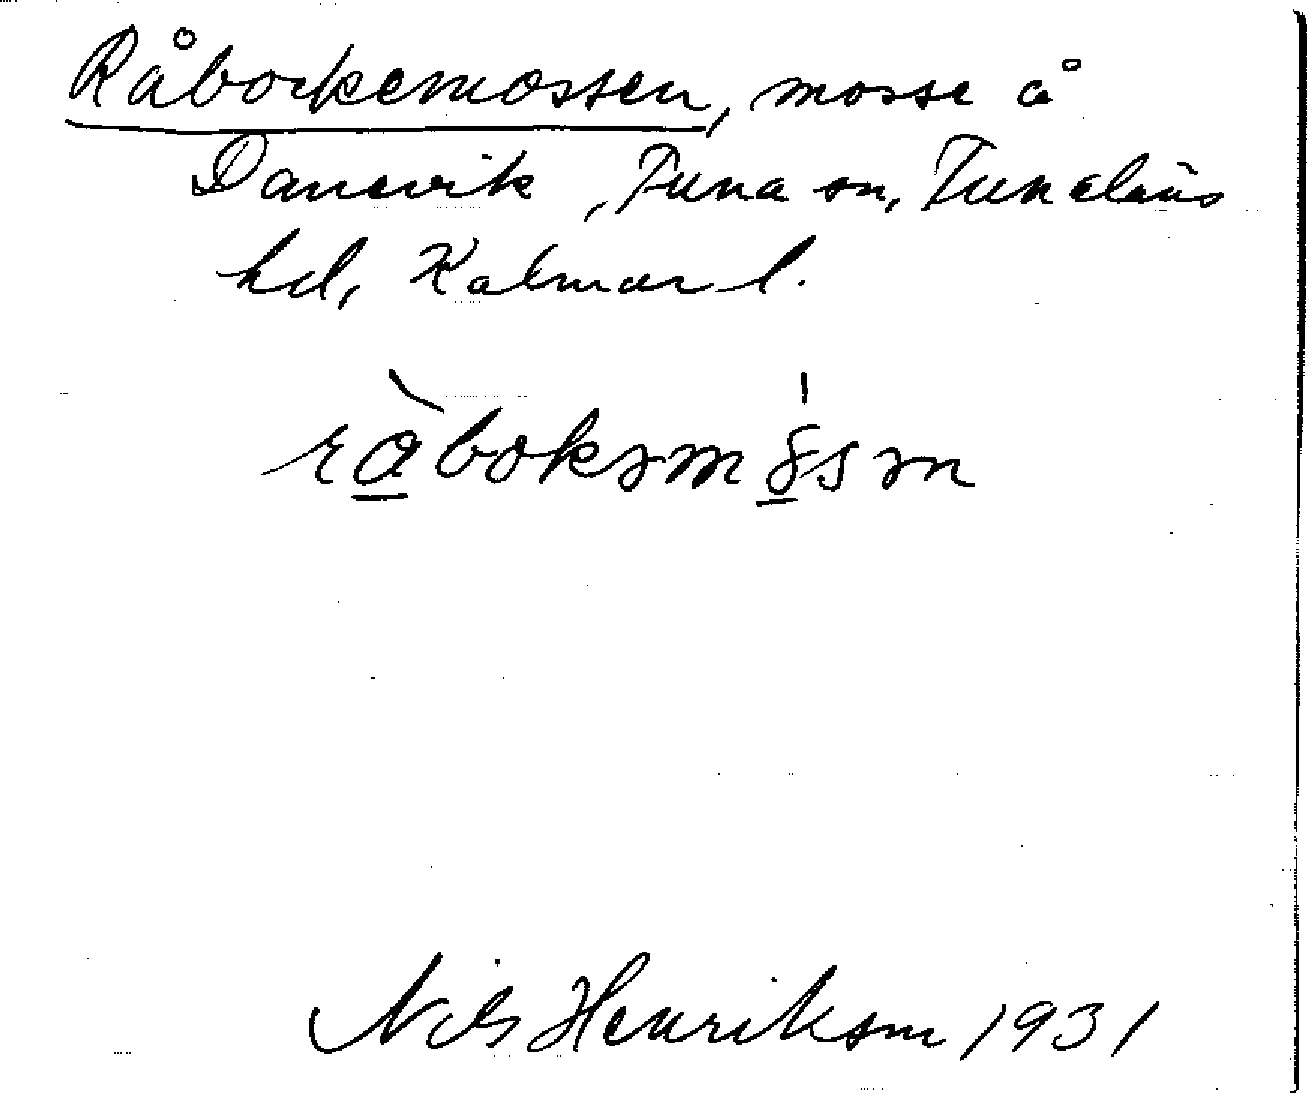 Råbockemossen, mosse å
Danevik, Tuna sn, Tunaläns
hd, Kalmar l.
ràboksmósən
Nils Henrikson 1931